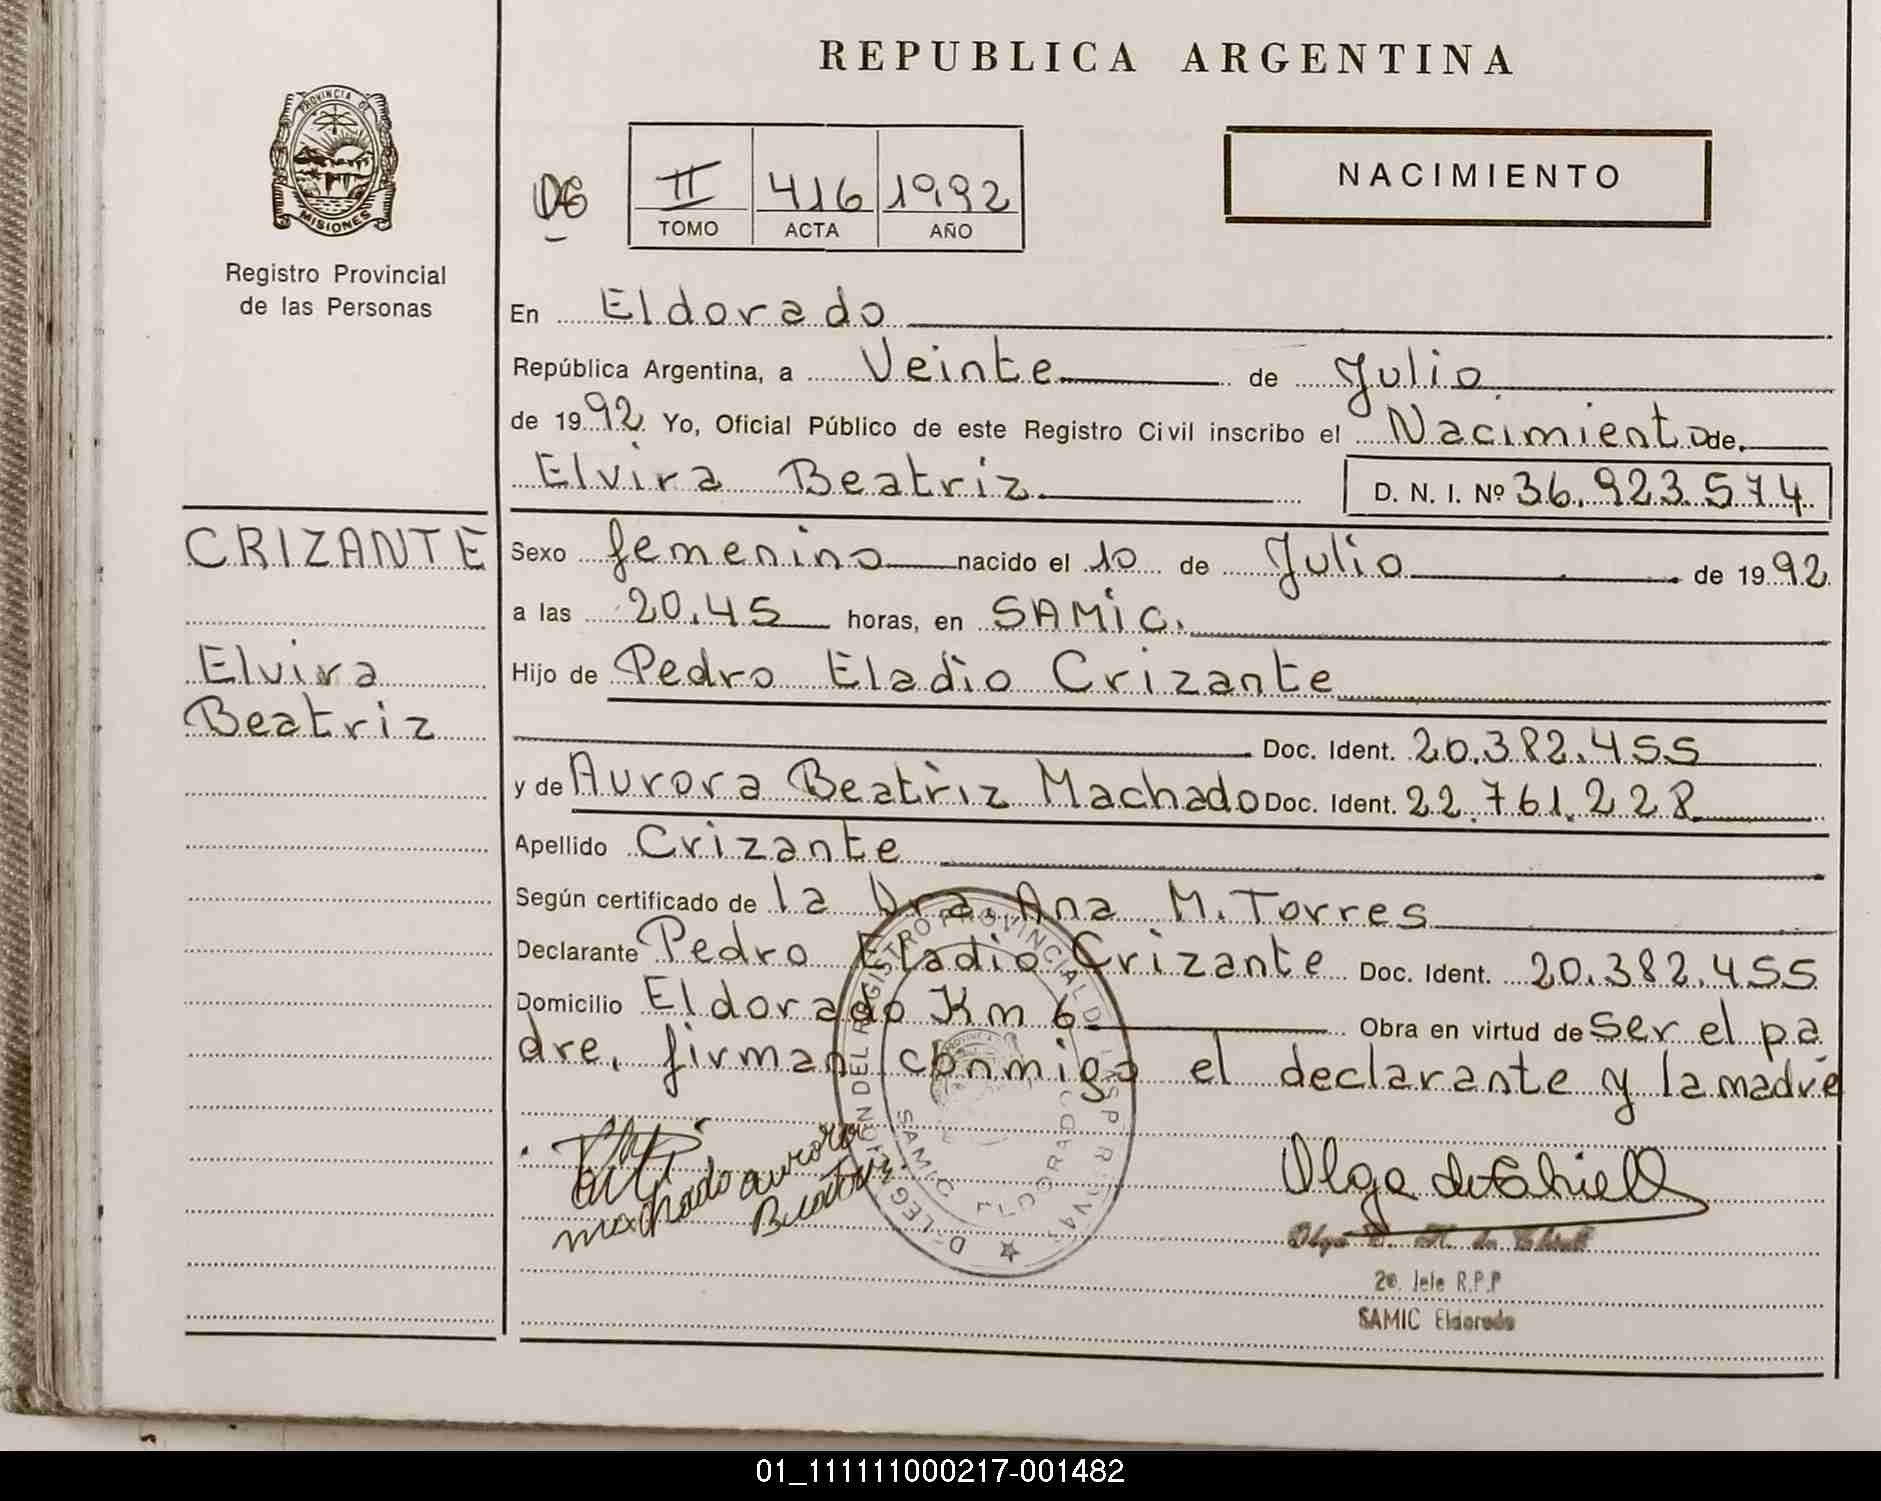 REPUBLICA ARGENTINA
PROVINCIA DE
MISIONES
Registro Provincial
de las Personas
NACIMIENTO
II 416 1992
TOMO ACTA AÑO
En Eldorado
República Argentina, a Veinte de Julio
de 1992 Yo, Oficial Público de este Registro Civil inscribo el Nacimiento de
Elvira Beatriz D. N. I. Nº 36.923.574
CRIZANTE
Elvira
Beatriz
Sexo femenino nacido el 10 de Julio de 1992
a las 20.45 horas, en SAMIC.
Hijo de Pedro Eladio Crizante
Doc. Ident. 20.382.455
y de Aurora Beatriz Machado Doc. Ident. 22.761.228
Apellido Crizante
Según certificado de la Dra. Ana M. Torres
Declarante Pedro Eladio Crizante Doc. Ident. 20.382.455
Domicilio Eldorado Km 6 Obra en virtud de ser el pa
dre, firman conmigo el declarante y la madre
machado aurora
Beatriz
REGISTRO PROVINCIAL
SAMIC ELDORADO
Olga de Chiell
2º Jefe R.P.P
SAMIC Eldorado
01_111111000217-001482